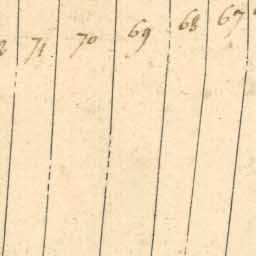 71 70 69 68 67